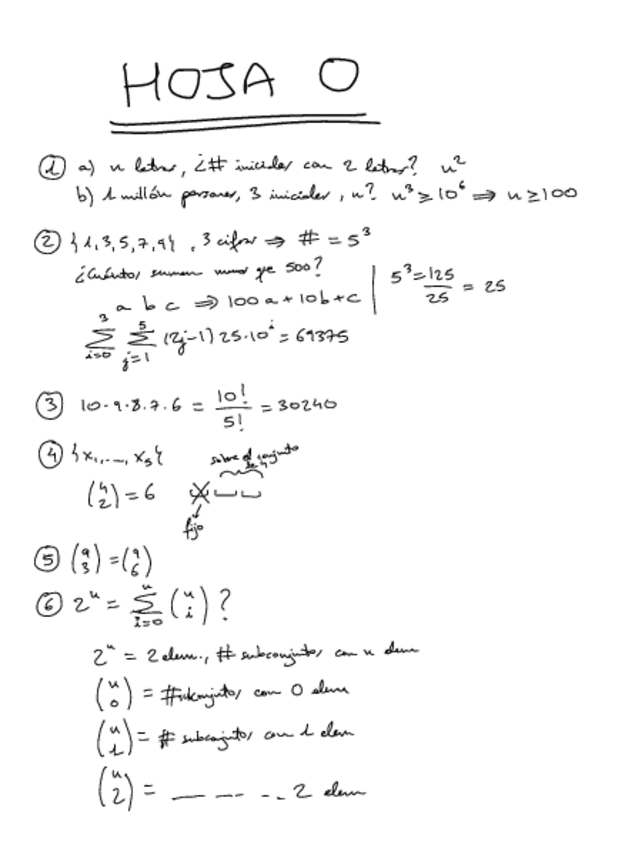 HOJA 0
① a) n letras, ¿# iniciales con 2 letras? n²
b) 1 millón personas, 3 iniciales, n? n³ ≥ 10⁶ ⟹ n ≥ 100
② {1,3,5,7,9}, 3 cifras ⟹ # = 5³
¿Cuántos suman menos que 500?
a b c ⟹ 100a + 10b + c | 5³ = 125/25 = 25
∑_{i=0}^{3} ∑_{j=1}^{5} (2j-1) 25·10^i = 69375
③ 10·9·8·7·6 = 10!/5! = 30240
④ {x₁, ..., x₅}
sobre el conjunto de 4
(4 2) = 6
fijo
⑤ (9 3) = (9 6)
⑥ 2ⁿ = ∑_{i=0}^{n} (n i)?
2ⁿ = 2 elem., # subconjuntos con n elem
(n 0) = # subconjuntos con 0 elem
(n 1) = # subconjuntos con 1 elem
(n 2) = __ __ -- 2 elem